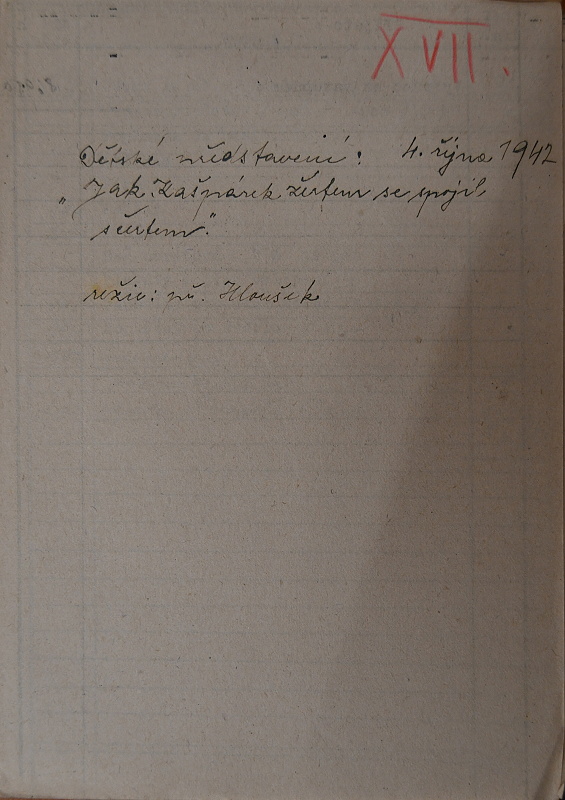 XVII.
Dětské představení: 4. října 1942
„Jak Kašpárek žertem se spojil
s čertem."
režie: př. Hloušek